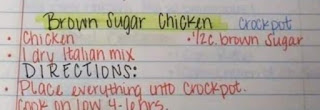 Brown Sugar Chicken Crockpot
• Chicken • 1/2c. brown Sugar
• 1 dry Italian mix
DIRECTIONS:
• Place everything into Crockpot.
Cook on low 4-6 hrs.